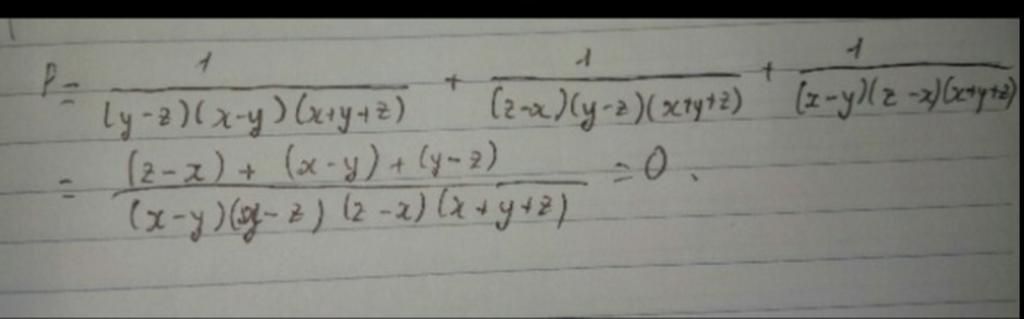 P = 1/((y-z)(x-y)(x+y+z)) + 1/((z-x)(y-z)(x+y+z)) + 1/((x-y)(z-x)(x+y+z))
= ((z-x) + (x-y) + (y-z))/((x-y)(y-z)(z-x)(x+y+z)) = 0.